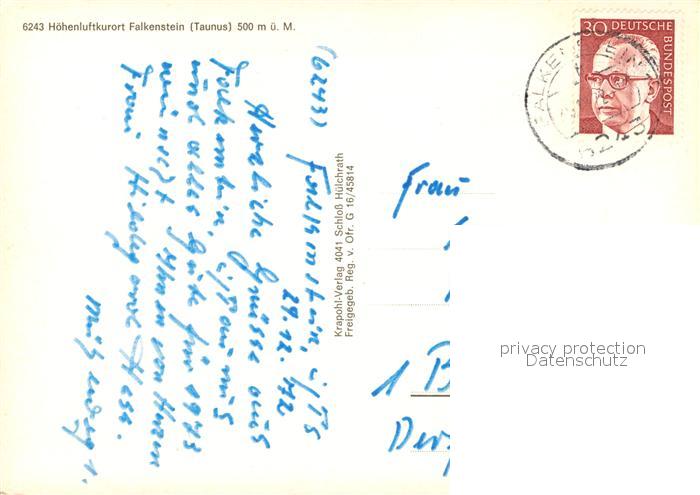 6243 Höhenluftkurort Falkenstein (Taunus) 500 m ü. M.
30 DEUTSCHE
BUNDESPOST
(6243) Falkenstein, i/Ts
29.12.72
Herzliche Grüsse aus
Falkenstein, i/Taunus
und alles Gute für 1973
wünscht Ihnen von Herzen
Frau Hildegard Hess.
Krapohl-Verlag 4041 Schloß Hülchrath
Freigegeb. Reg. v. Ofr. G 16/45814
Frau
1 B
privacy protection
Datenschutz